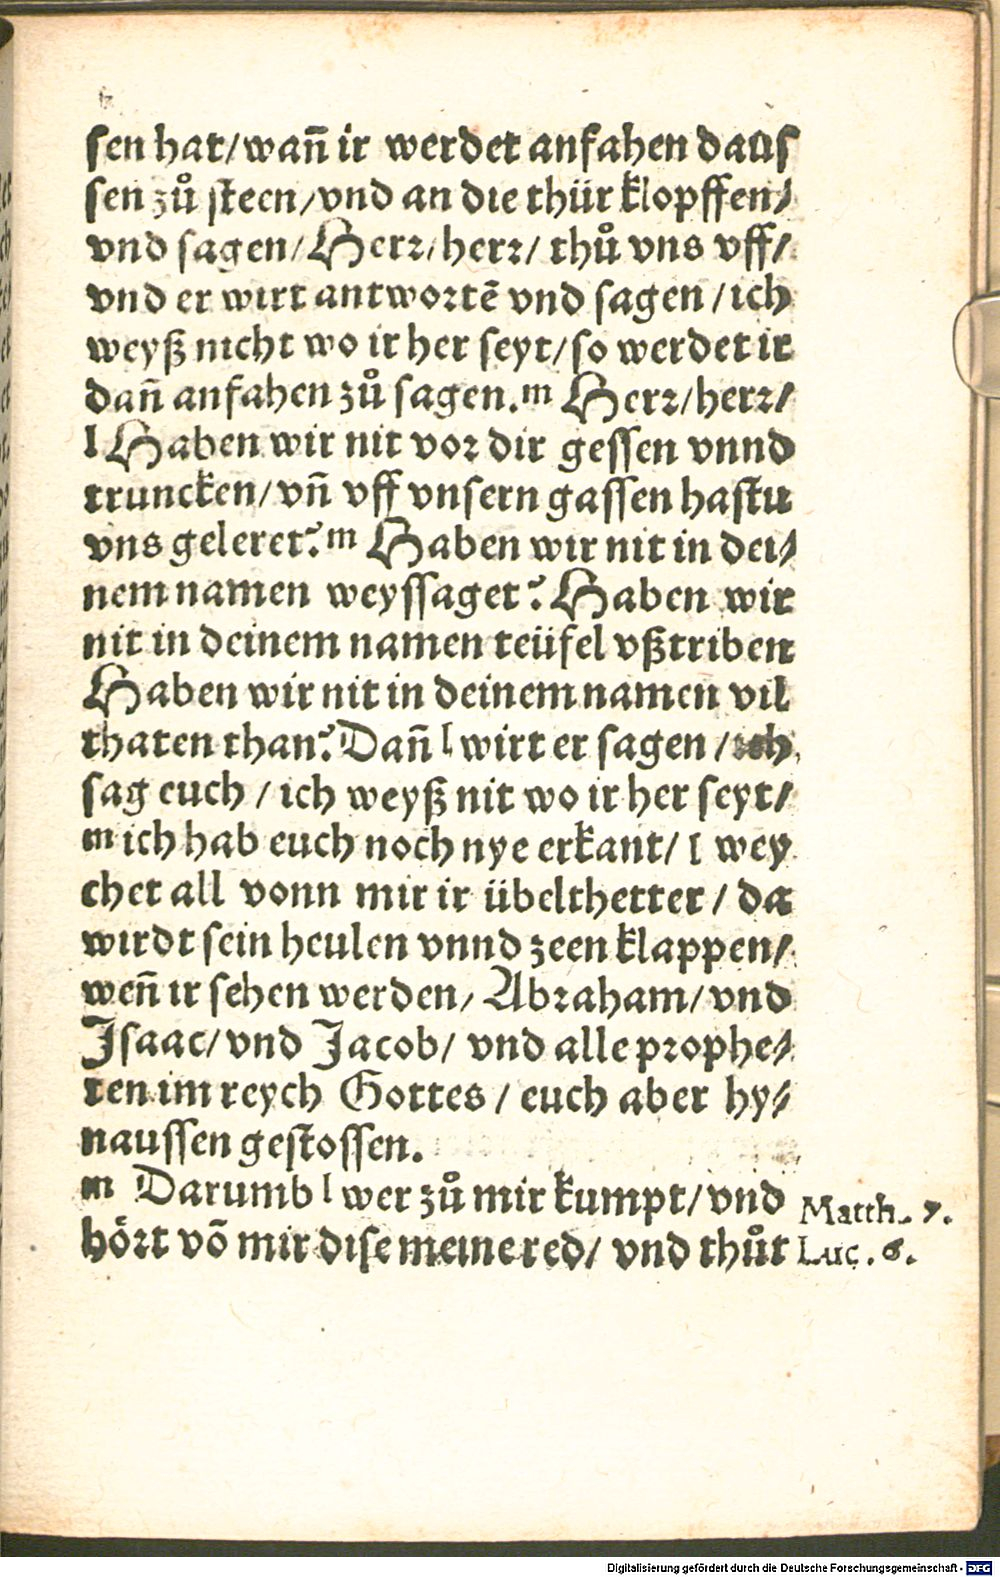 sen hat/wañ ir werdet anfahen dauſ
sen zů steen/vnd an die thür klopffen/
vnd sagen/Herr/herr/thů vns vff/
vnd er wirt antwortē vnd sagen/ich
weyß nicht wo ir her seyt/so werdet ir
dañ anfahen zů sagen.m Herr/herr/
l Haben wir nit vor dir gessen vnnd
truncken/vñ vff vnsern gassen hastu
vns geleret?m Haben wir nit in dei/
nem namen weyssaget? Haben wir
nit in deinem namen teüfel vßtriben
Haben wir nit in deinem namen vil
thaten than? Dañ l wirt er sagen/ich
sag euch/ich weyß nit wo ir her seyt/
m ich hab euch noch nye erkant/l wey
chet all vonn mir ir übelthetter/da
wirdt sein heulen vnnd zeen klappen/
weñ ir sehen werden/Abraham/vnd
Isaac/vnd Jacob/vnd alle prophe/
ten im reych Gottes/euch aber hy/
naussen gestossen.
m Darumb l wer zů mir kumpt/vnd
hört vō mir dise meine red/vnd thůt
Matth. 7.
Luc. 6.
Digitalisierung gefördert durch die Deutsche Forschungsgemeinschaft - DFG